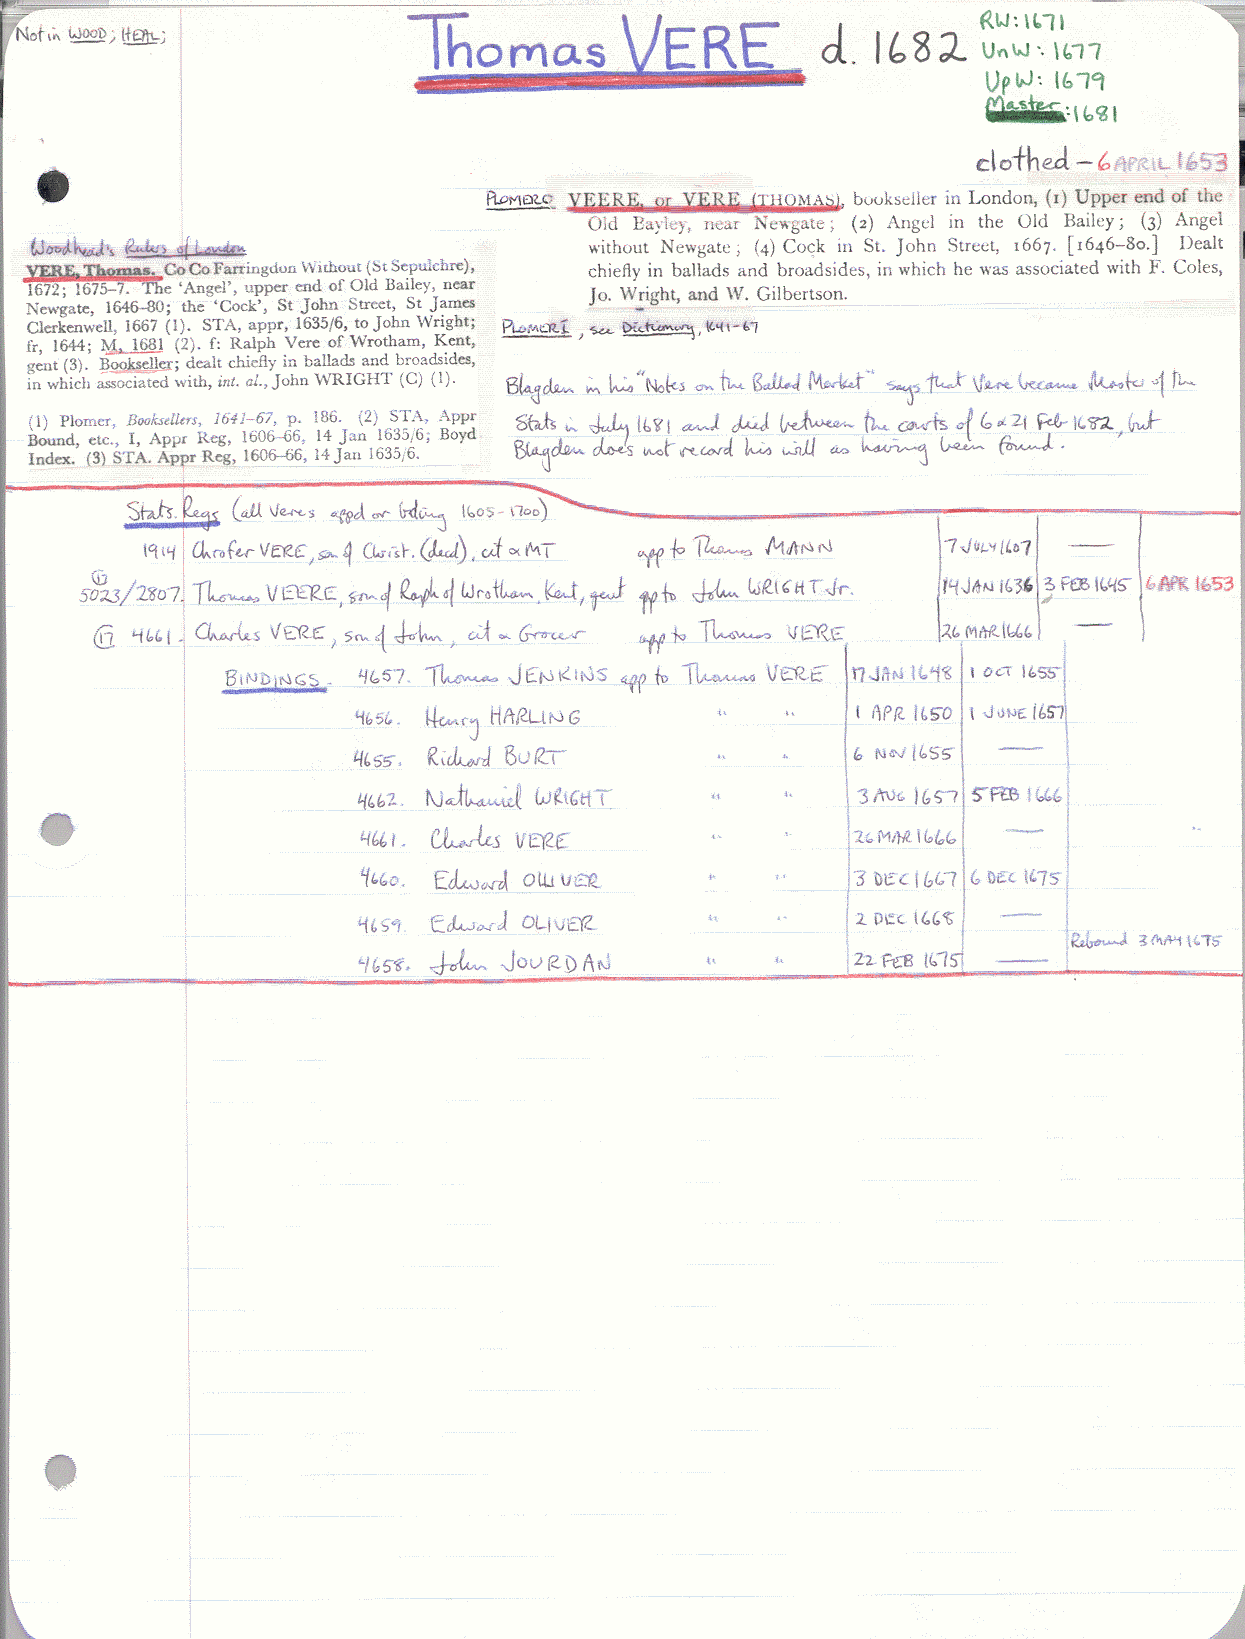 Not in WOOD; HEAL;
Thomas VERE d. 1682
RW: 1671
UnW: 1677
UpW: 1679
Master: 1681
clothed – 6 APRIL 1653
PLOMER: VEERE, or VERE (THOMAS), bookseller in London, (1) Upper end of the
Old Bayley, near Newgate; (2) Angel in the Old Bailey; (3) Angel
without Newgate; (4) Cock in St. John Street, 1667. [1646–80.] Dealt
chiefly in ballads and broadsides, in which he was associated with F. Coles,
Jo. Wright, and W. Gilbertson.
PLOMER I, see Dictionary, 1641–67
Woodhead's Rulers of London
VERE, Thomas. Co Co Farringdon Without (St Sepulchre),
1672; 1675–7. The 'Angel', upper end of Old Bailey, near
Newgate, 1646–80; the 'Cock', St John Street, St James
Clerkenwell, 1667 (1). STA, appr, 1635/6, to John Wright;
fr, 1644; M, 1681 (2). f: Ralph Vere of Wrotham, Kent,
gent (3). Bookseller; dealt chiefly in ballads and broadsides,
in which associated with, int. al., John WRIGHT (C) (1).
(1) Plomer, Booksellers, 1641–67, p. 186. (2) STA, Appr
Bound, etc., I, Appr Reg, 1606–66, 14 Jan 1635/6; Boyd
Index. (3) STA. Appr Reg, 1606–66, 14 Jan 1635/6.
Blagden in his "Notes on the Ballad Market" says that Vere became Master of the
Stats in July 1681 and died between the courts of 6 & 21 Feb 1682, but
Blagden does not record his will as having been found.
Stats. Regs (all Veres appd or bding 1605–1700)
1914 Chrofer VERE, son of Christ. (decd), cit & MT app to Thomas MANN 7 JULY 1607 —
(17) 5023/2807. Thomas VEERE, son of Raph of Wrotham, Kent, gent app to John WRIGHT Jr. 14 JAN 1636 3 FEB 1645 6 APR 1653
(17) 4661. Charles VERE, son of John, cit & Grocer app to Thomas VERE 26 MAR 1666 —
BINDINGS. 4657. Thomas JENKINS app to Thomas VERE 17 JAN 1648 1 OCT 1655
4656. Henry HARLING " " 1 APR 1650 1 JUNE 1657
4655. Richard BURT " " 6 NOV 1655 —
4662. Nathaniel WRIGHT " " 3 AUG 1657 5 FEB 1666
4661. Charles VERE " " 26 MAR 1666 —
4660. Edward OLLIVER " " 3 DEC 1667 6 DEC 1675
4659. Edward OLIVER " " 2 DEC 1668 —
4658. John JOURDAN " " 22 FEB 1675 — Rebound 3 MAY 1675